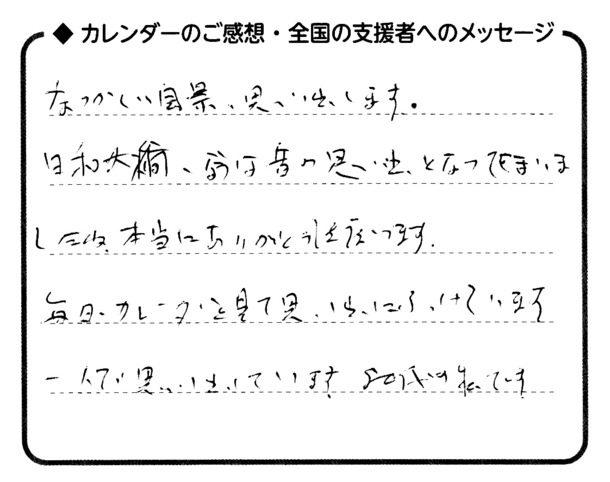 ◆ カレンダーのご感想・全国の支援者へのメッセージ
なつかしい風景、思い出します。
日和大橋、今は昔の思い出となってしまいま
したね、本当にありがとうございます。
毎日、カレンダーを見て思い出にふけています
一人で思い出しています 80代の私です